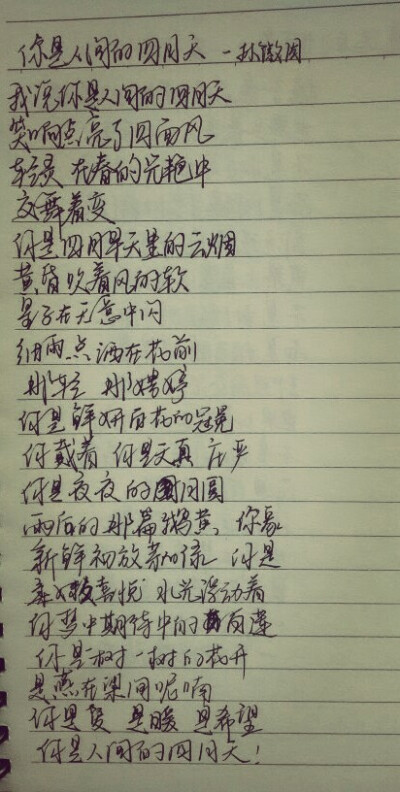 你是人间的四月天 -林徽因
我说你是人间的四月天
笑响点亮了四面风
轻灵 在春的光艳中
交舞着变
你是四月早天里的云烟
黄昏吹着风的软
星子在无意中闪
细雨点洒在花前
那轻 那娉婷
你是 鲜妍百花的冠冕
你戴着 你是天真 庄严
你是夜夜的月圆
雨后的那篇鹅黄,你象
新鲜初放芽的绿 你是
柔嫩喜悦 水光浮动着
你梦中期待中的白莲
你是一树一树的花开
是燕在梁间呢喃
你是爱 是暖 是希望
你是人间的四月天!